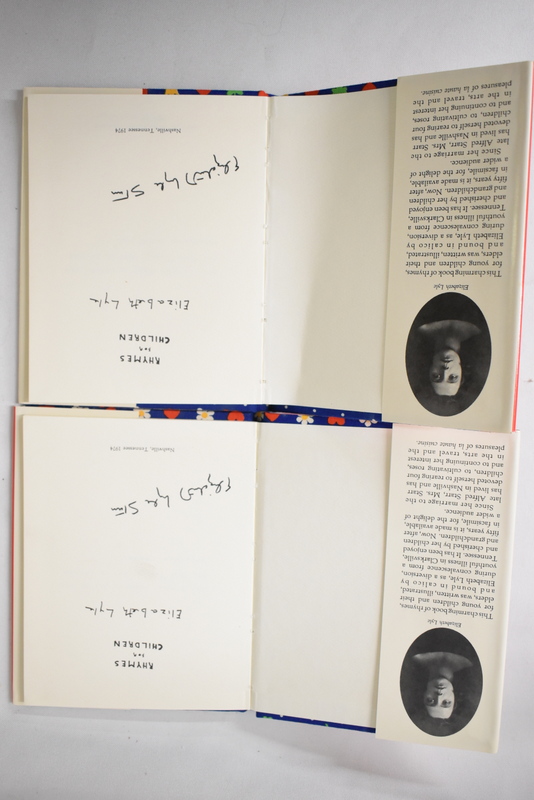 RHYMES
FOR
CHILDREN
Elizabeth Lyle
Elizabeth Lyle Starr
Nashville, Tennessee 1974
Elizabeth Lyle
This charming book of rhymes,
for young children and their
elders, was written, illustrated,
and bound in calico by
Elizabeth Lyle, as a diversion,
during convalescence from a
youthful illness in Clarksville,
Tennessee. It has been enjoyed
and cherished by her children
and grandchildren. Now, after
fifty years, it is made available,
in facsimile, for the delight of
a wider audience.
Since her marriage to the
late Alfred Starr, Mrs. Starr
has lived in Nashville and has
devoted herself to rearing four
children, to cultivating roses,
and to continuing her interest
in the arts, travel and the
pleasures of la haute cuisine.
RHYMES
FOR
CHILDREN
Elizabeth Lyle
Elizabeth Lyle Starr
Nashville, Tennessee 1974
Elizabeth Lyle
This charming book of rhymes,
for young children and their
elders, was written, illustrated,
and bound in calico by
Elizabeth Lyle, as a diversion,
during convalescence from a
youthful illness in Clarksville,
Tennessee. It has been enjoyed
and cherished by her children
and grandchildren. Now, after
fifty years, it is made available,
in facsimile, for the delight of
a wider audience.
Since her marriage to the
late Alfred Starr, Mrs. Starr
has lived in Nashville and has
devoted herself to rearing four
children, to cultivating roses,
and to continuing her interest
in the arts, travel and the
pleasures of la haute cuisine.